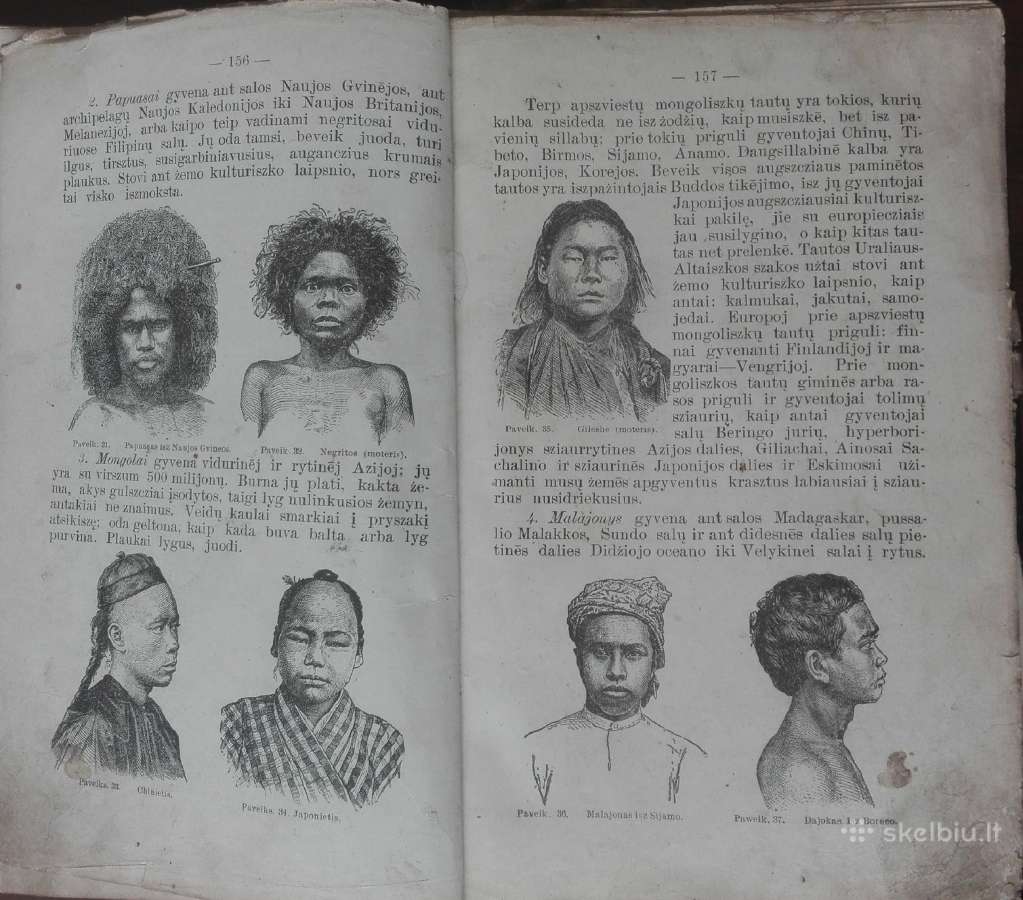 — 156 —
2. Papuasai gyvena ant salos Naujos Gvinėjos, ant
archipelagų Naujos Kaledonijos iki Naujos Britanijos,
Melanezijoj, arba kaipo teip vadinami negritosai vidu-
riuose Filipinų salų. Jų oda tamsi, beveik juoda, turi
ilgus, tirsztus, susigarbiniavusius, auganczius krumais
plaukus. Stovi ant žemo kulturiszko laipsnio, nors grei-
tai visko iszmoksta.
Paveik. 31. Papuasas isz Naujos Gvineos.
Paveik. 32. Negritos (moteris).
3. Mongolai gyvena vidurinėj ir rytinėj Azijoj; jų
yra su virszum 500 milijonų. Burna jų plati, kakta že-
ma, akys gulszcziai įsodytos, taigi lyg nulinkusios žemyn,
antakiai ne znaimus. Veidų kaulai smarkiai į pryszakį
atsikiszę; oda geltona, kaip kada buva balta arba lyg
purvina. Plaukai lygus, juodi.
Paveiks. 33. Chinietis.
Paveiks. 34. Japonietis.
— 157 —
Terp apszviestų mongoliszkų tautų yra tokios, kurių
kalba susideda ne isz žodžių, kaip musiszkė, bet isz pa-
vienių sillabų; prie tokių priguli gyventojai Chinų, Ti-
beto, Birmos, Sijamo, Anamo. Daugsillabinė kalba yra
Japonijos, Korejos. Beveik visos augszcziaus paminėtos
tautos yra iszpažintojais Buddos tikėjimo, isz jų gyventojai
Japonijos augszcziausiai kulturisz-
kai pakilę, jie su europiecziais
jau susilygino, o kaip kitas tau-
tas net prelenkė. Tautos Uraliaus-
Altaiszkos szakos užtai stovi ant
žemo kulturiszko laipsnio, kaip
antai: kalmukai, jakutai, samo-
jedai. Europoj prie apszviestų
mongoliszkų tautų priguli: fin-
nai gyvenanti Finlandijoj ir ma-
gyarai—Vengrijoj. Prie mon-
goliszkos tautų giminės arba ra-
sos priguli ir gyventojai tolimų
sziaurių, kaip antai gyventojai
salų Beringo jurių, hyperbori-
Paveik. 35. Gileshe (moteris).
jonys sziaurrytines Azijos dalies, Giliachai, Ainosai Sa-
chalino ir sziaurinės Japonijos dalies ir Eskimosai uži-
manti musų žemės apgyventus krasztus labiausiai į sziau-
rius nusidriekusius.
4. Malajonys gyvena ant salos Madagaskar, pussa-
lio Malakkos, Sundo salų ir ant didesnės dalies salų pie-
tinės dalies Didžiojo oceano iki Velykinei salai į rytus.
Paveik. 36. Malajonas isz Sijamo.
Paweik. 37. Dajokas isz Borneo.
skelbiu.lt